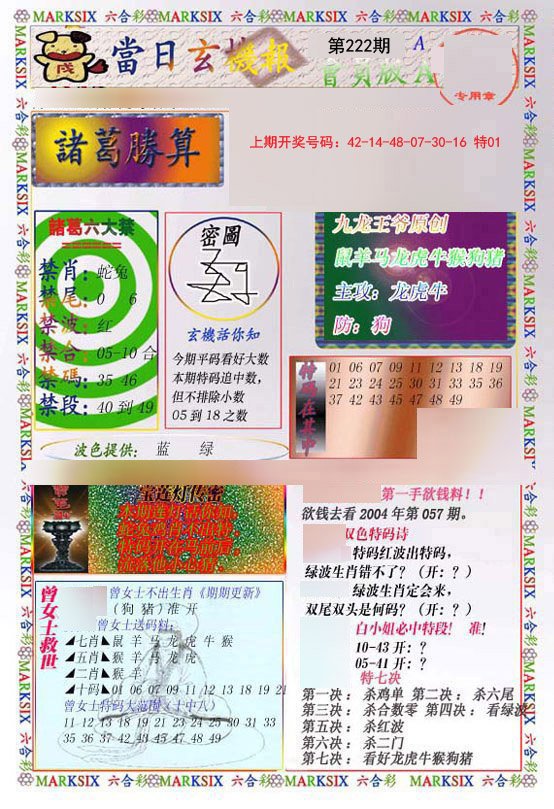 MARKSIX 六合彩 MARKSIX 六合彩 MARKSIX 六合彩 MARKSIX 六合彩 MARKSIX
當日玄機報
第222期
A
會員版A
专用章
諸葛勝算
上期开奖号码：42-14-48-07-30-16 特01
諸葛六大禁
禁肖：蛇兔
禁尾：0 6
禁波：红
禁合：05-10合
禁碼：35 46
禁段：40到49
密圖
玄機話你知
今期平码看好大数
本期特码追中数，
但不排除小数
05到18之数
九龙王爷原创
鼠羊马龙虎牛猴狗猪
主攻：龙虎牛
防：狗
特码在其中
01 06 07 09 11 12 13 18 19
21 23 24 25 30 31 33 35 36
37 42 43 45 47 48 49
波色提供： 蓝 绿
宝莲灯传密
第一手欲钱料！！
欲钱去看2004年第057期。
双色特码诗
特码红波出特码，
绿波生肖错不了？（开：？）
绿波生肖定会来，
双尾双头是何码？（开：？）
白小姐必中特段! 准!
10-43 开：？
05-41 开：？
特七决
第一决： 杀鸡单 第二决： 杀六尾
第三决： 杀合数零 第四决： 看绿波
第五决： 杀红波
第六决： 杀二门
第七决： 看好龙虎牛猴狗猪
曾女士救世
曾女士不出生肖《期期更新》
(狗 猪)准 开
曾女士送码料：
◢七肖◣鼠 羊 马 龙 虎 牛 猴
◢五肖◣猴 羊 马 龙 虎
◢二肖◣猴 羊
◢十码◣01 06 07 09 11 12 13 18 19 21
曾女士特码大范围（十中八）
11 12 13 18 19 21 23 24 25 30 31 33
35 36 37 42 43 45 47 48 49
MARKSIX 六合彩 MARKSIX 六合彩 MARKSIX 六合彩 MARKSIX 六合彩 MARKSIX